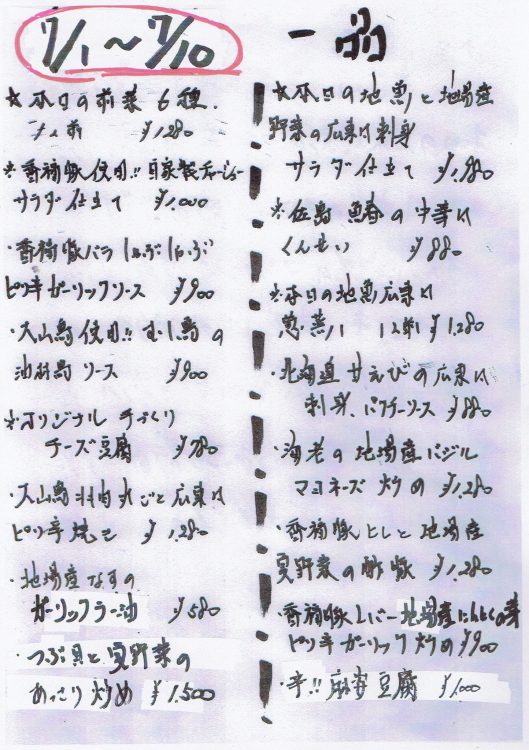 7/1～7/10
一品
☆本日の前菜6種.
1人前 ¥1,280
※香福豚使用!!自家製チャーシュー
サラダ仕立て ¥1,000
・香福豚バラしゃぶしゃぶ
ピリ辛ガーリックソース ¥900
・大山鳥使用!!むし鳥の
ソース ¥900
※オリジナル手づくり
チーズ豆腐 ¥780
・大山鳥 丸ごと広東風
ピリ辛焼き ¥1,280
・地場産なすの
ガーリックラー油 ¥580
・つぶ貝と夏野菜の
あっさり炒め ¥1,500
☆本日の地魚と地場産
野菜の広東風刺身
サラダ仕立て ¥1,980
※佐島 の中華風
くんせい ¥880
※本日の地魚広東風
蒸し 1人前 ¥1,280
・北海道甘えびの広東風
刺身、パクチーソース ¥880
・海老の地場産バジル
マヨネーズ炒め ¥1,280
・香福豚ヒレと地場産
夏野菜の酢豚 ¥1,280
・香福豚レバー地場産にんにくの芽
ピリ辛ガーリック炒め ¥900
・辛!!麻婆豆腐 ¥1,000